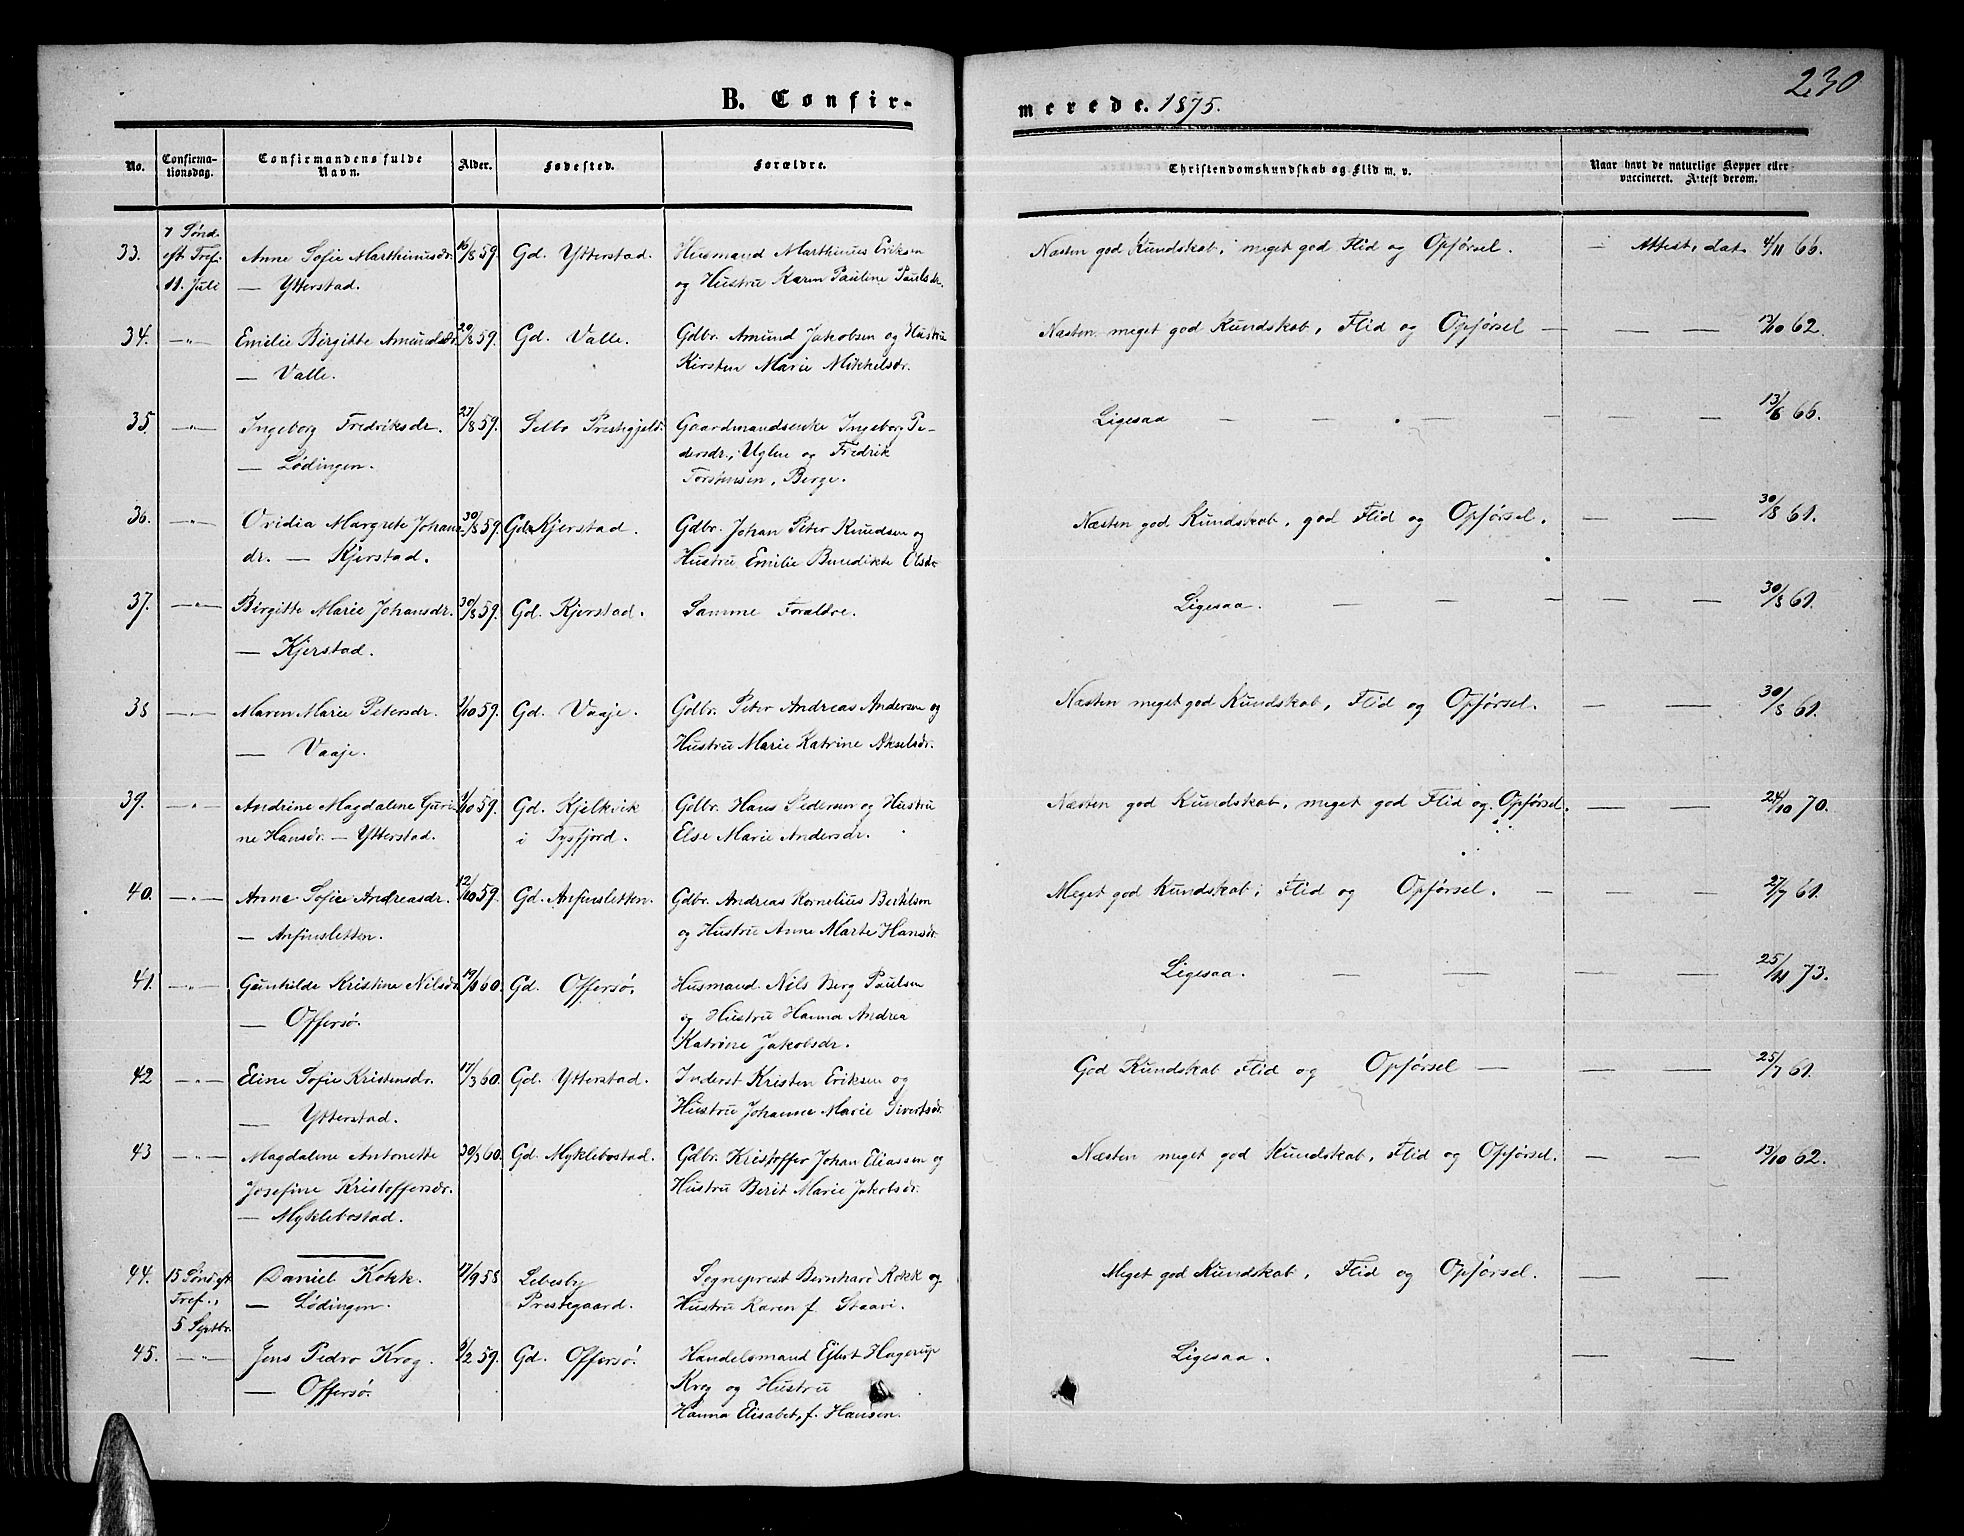 230
B. Confir-
merede. 1875.
No.
Confirma-
tionsdag.
Confirmandens fulde
Navn.
Alder.
Fødested.
Forældre.
Christendomskundskab og Flid m. v.
Naar havt de naturlige Kopper eller
vaccineret. Attest derom.
33. 7 Sønd. eft. Tref. 11. Juli
Anne Sofie Marthinusdr.
— Ytterstad.
16/8 59. Gd. Ytterstad.
Husmand Marthinus Eriksen
og Hustru Karen Pauline Paulsdr.
Næsten god Kundskab, meget god Flid og Opførsel. — Attest, dat. 4/11 66.
34. —„—
Emilie Birgitte Amundsdr.
— Valle.
20/8 59. Gd. Valle.
Gdbr. Amund Jakobsen og Hustru
Kirsten Marie Mikkelsdr.
Næsten meget god Kundskab, Flid og Opførsel — — — 13/10 62.
35. —„—
Ingeborg Fredriksdr.
— Lødingen.
23/8 59. Selbo Prestegjeld.
Gaardmandsenke Ingeborg Pe-
dersdr., Uglen og Fredrik
Torstensen, Berge.
Ligesaa — — — — — — 13/6 66.
36. —„—
Ovidia Margrete Johans-
dr. — Kjerstad.
30/8 59. Gd. Kjerstad.
Gdbr. Johan Peter Knudsen og
Hustru Emilie Benedikte Olsdr.
Næsten god Kundskab, god Flid og Opførsel. — — 30/8 61.
37. —„—
Birgitte Marie Johansdr.
— Kjerstad.
30/8 59. Gd. Kjerstad.
Samme Forældre.
Ligesaa. — — — — — 30/8 61.
38 —„—
Maren Marie Petersdr.
— Vaaje.
9/10 59. Gd. Vaaje.
Gdbr. Peter Andreas Andersen og
Hustru Marie Katrine Akselsdr.
Næsten meget god Kundskab, Flid og Opførsel. — — 30/8 61.
39. —„—
Andrine Magdalene Guri-
ne Hansdr. — Ytterstad.
9/10 59. Gd. Kjelkvik
i Tysfjord.
Gdbr. Hans Pedersen og Hustru
Else Marie Andersdr.
Næsten god Kundskab, meget god Flid og Opførsel. — — 24/10 70.
40. —„—
Anne Sofie Andreasdr.
— Anfinsletten.
12/10 59. Gd. Anfinsletten.
Gdbr. Andreas Kornelius Bertelsen
og Hustru Anne Marte Hansdr.
Meget god Kundskab, Flid og Opførsel. — — — 27/7 61.
41. —„—
Gunhilde Kristine Nilsdr.
— Offersø.
19/1 60. Gd. Offersø.
Husmand Nils Berg Paulsen
og Hustru Hanna Andrea
Katrine Jakobsdr.
Ligesaa. — — — — 25/11 73.
42 —„—
Eline Sofie Kristensdr.
— Ytterstad.
17/3 60. Gd. Ytterstad.
Inderst Kristen Eriksen og
Hustru Johanne Marie Sivertsdr.
God Kundskab Flid og Opførsel — — — 25/7 61.
43 —„—
Magdalene Antonette
Josefine Kristoffersdr.
— Myklebostad.
30/3 60. Gd. Myklebostad.
Gdbr. Kristoffer Johan Eliassen og
Hustru Berit Marie Jakobsdr.
Næsten meget god Kundskab, Flid og Opførsel. — — 13/10 62.
44. 15 Sønd. eft. Tref., 5 Septbr.
Daniel Kokk.
— Lødingen.
17/9 58 Lebesby
Prestegaard.
Sogneprest Bernhard Kokk og
Hustru Karen f. Staavi.
Meget god Kundskab, Flid og Opførsel. — —
45. —„—
Jens Pedro Krog.
— Offersø.
5/2 59. Gd. Offersø.
Handelsmand Ejlert Hagerup
Krog og Hustru
Hanna Elisabet, f. Hansen.
Ligesaa. — —